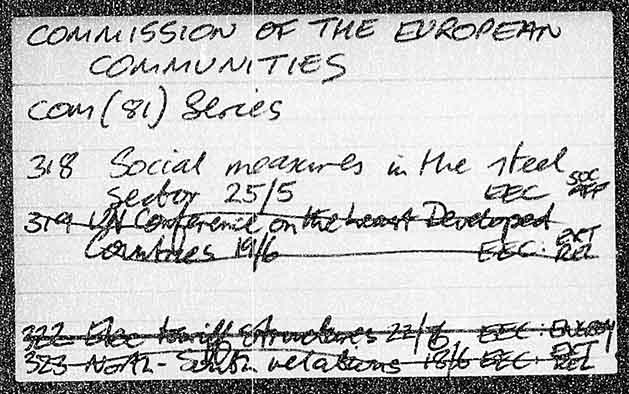 COMMISSION OF THE EUROPEAN
COMMUNITIES
COM (81) Series
318 Social measures in the steel
sector 25/5 EEC SOC AFF
319 UN Conference on the Least Developed
Countries 19/6 EEC: EXT REL
322 Elec tariff structures 22/6 EEC: ENERGY
323 North-South relations 18/6 EEC: EXT REL